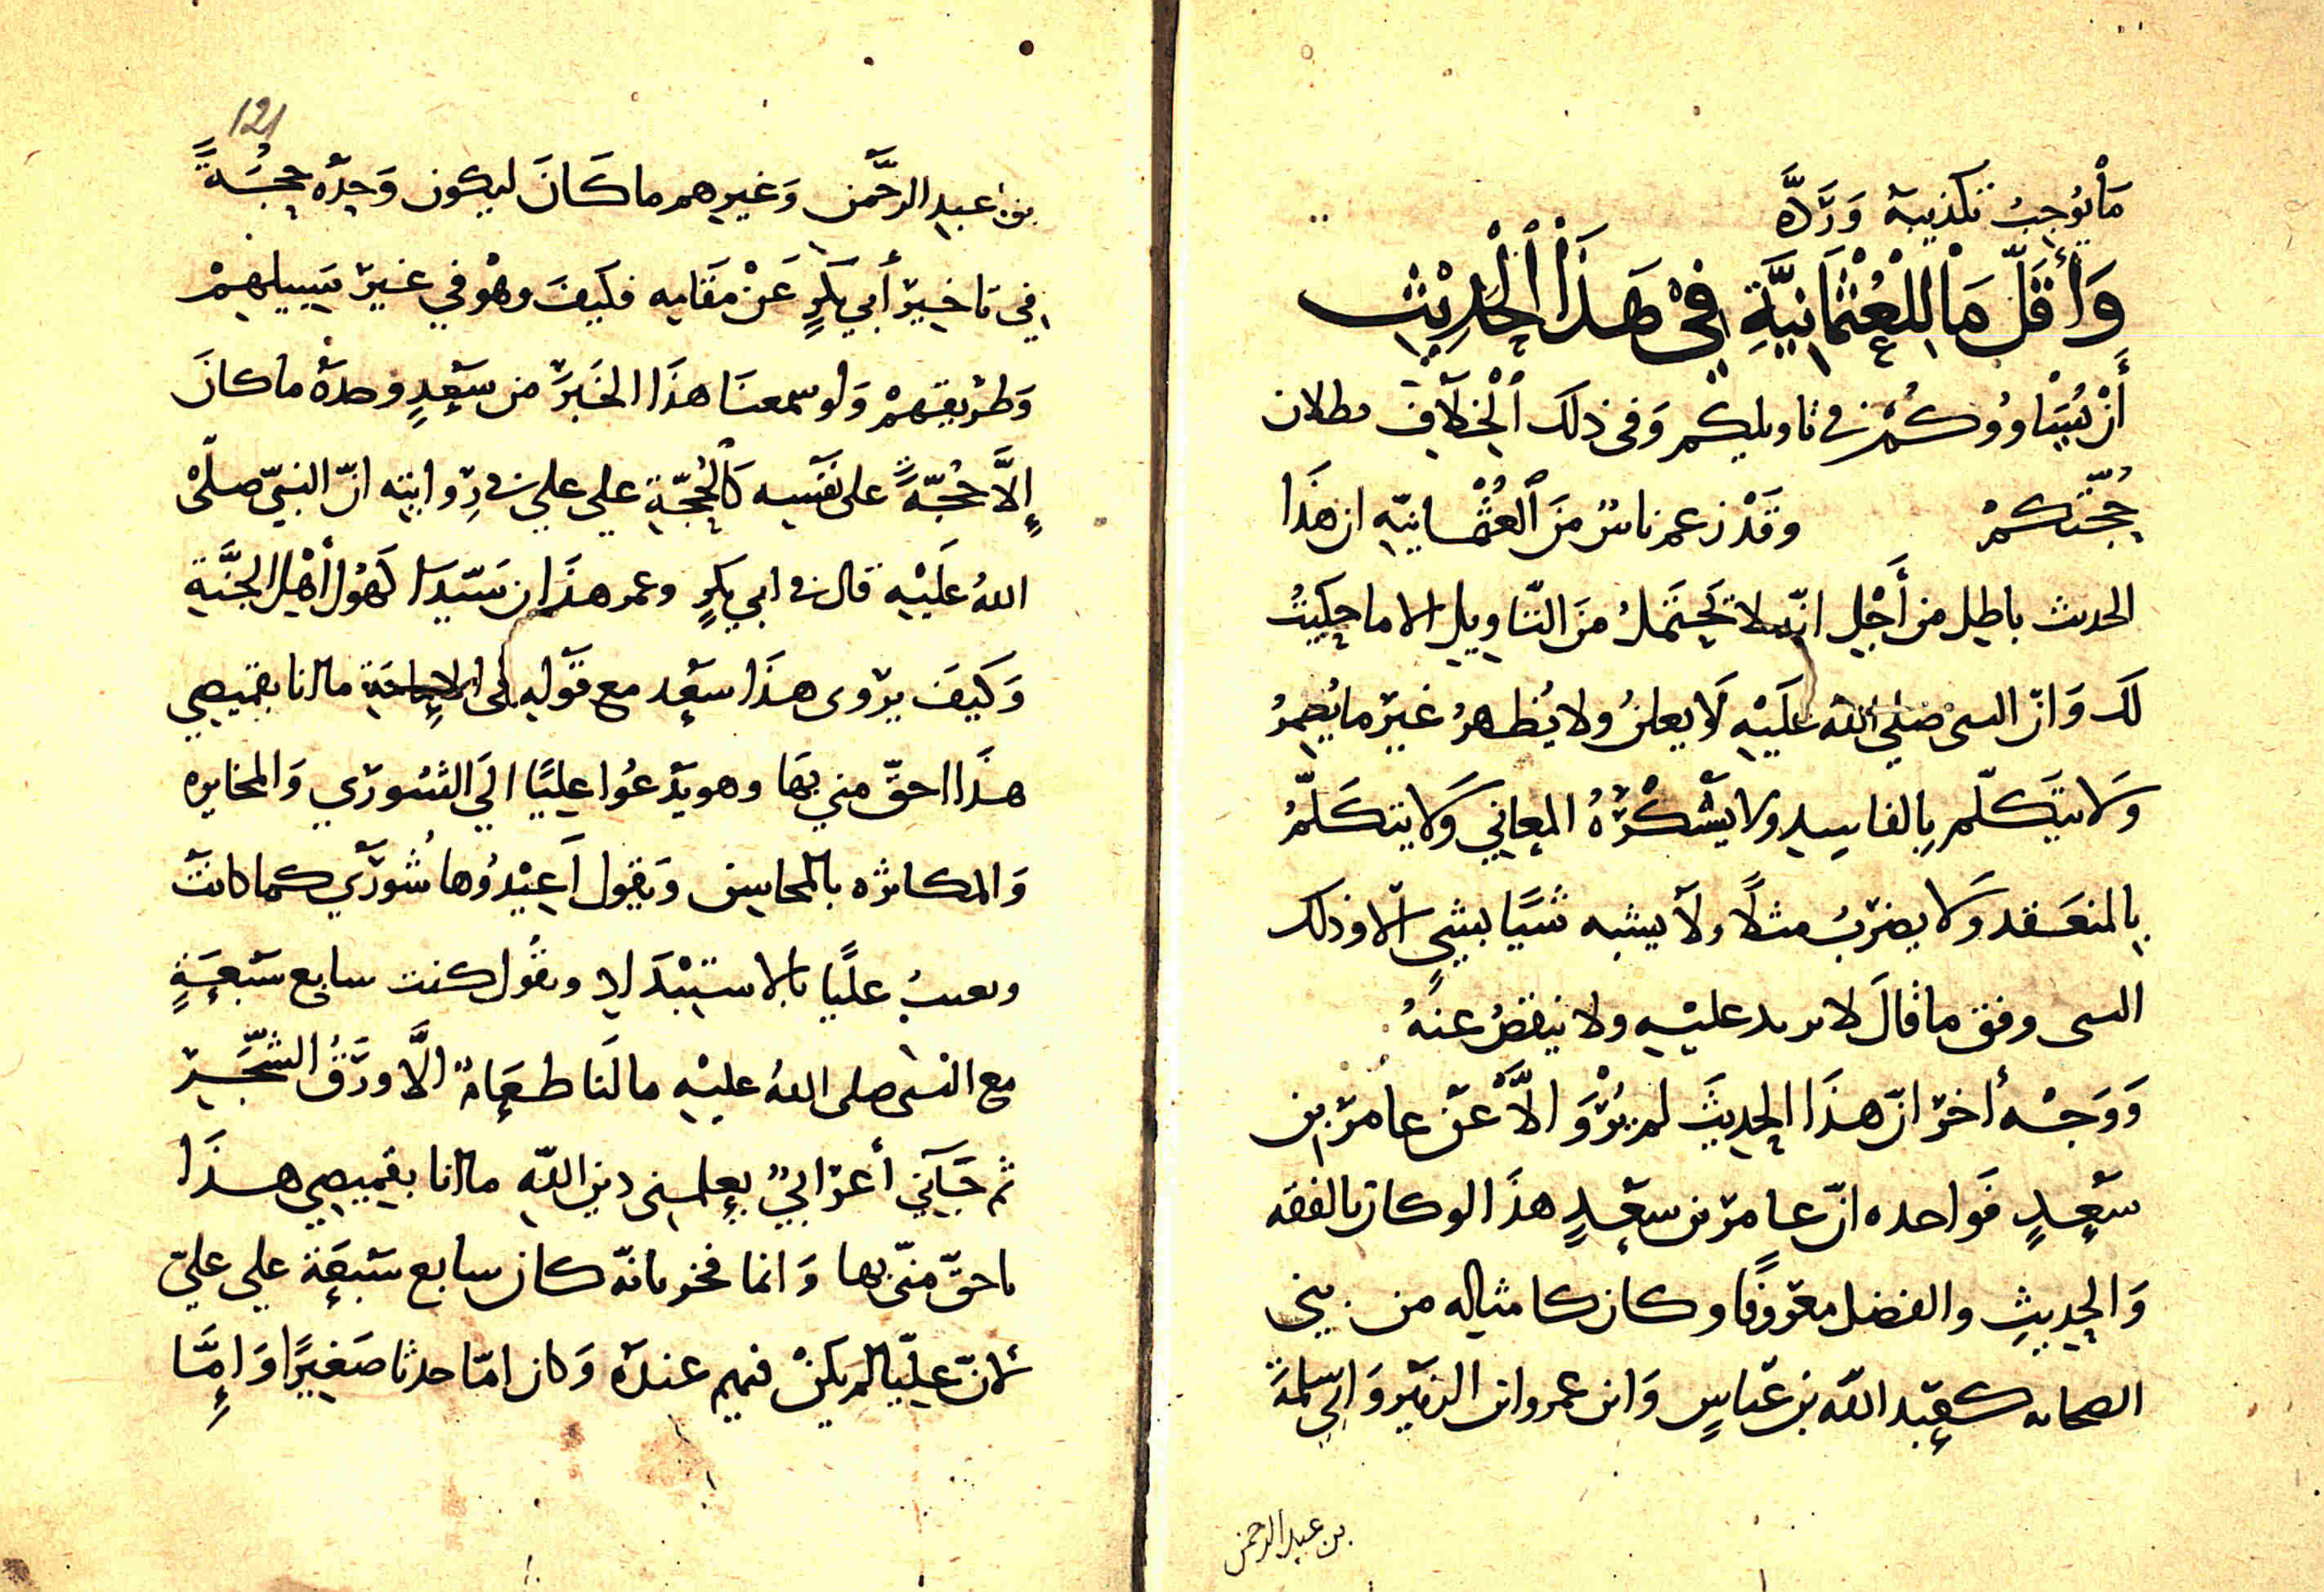 مَا يُوجِبُ تكذيبه وَرَدَّه
وَأَقَلّ مَا لِلْعُثْمَانِيَّةِ فِي هَذَا الْحَدِيْثِ
أَنْ يُسَاووُكُمْ في تاويلكم وَفي ذلك الْخِلَافِ بطلان
حُجّتكمْ وقَدْ زعم ناسٌ مِنَ الْعُثْمانيّه ان هذَا
الحديث باطِل من أَجْلِ انّه لا يَحْتَمَلُ مِنَ التّاوِيلِ الا ما حكيتُ
لَك وَانّ النبى صلى اللهُ عَلَيْهِ لَا يعلنُ ولا يُظهرُ غَيرَ ما يُضمِرُ
وَلا يَتكَلّم بِالفاسِدِ ولا يَسْتَكْرَهُ المعَاني وَلا يتكَلَّمُ
بالمنعَقد وَلا يضرِبُ مثلًا ولَا يشبه شَيًا بشيءٍ الّا وَذلك
الشى وفق ما قالَ لا يزيد عليْهِ ولا ينقصُ عنهُ
وَوَجْه أخر انّ هذَا الحديثَ لم يُرْوَ الَّا عَنْ عامر بن
سَعْدٍ فَواحده انّ عامرَ بن سَعْدٍ هذَا لو كان بالفقه
وَالحِديثِ والفضل معروُفًا وكان كامثاله من بني
الصحابه كعَبْد اللّه بن عَبّاسٍ وَابن عمر وابن الزبَير وَابي سلمةَ
بن عبد الرحمن
121
بن عبدِ الرحَّمن وَغيرِهم ما كَانَ ليكون وَحدَه حجُّةً
في تاخيرِ أَبي بَكرٍ عَنْ مَقامِه فكَيفَ وهْو في غيرِ سَبِيلِهمْ
وَطريقِهمْ وَلو سمعنَا هذَا الخَبَرَ من سَعْدٍ وحدَهْ ما كانَ
إلَّا حُجّةً على نَفسِه كَالْحُجّةِ علي علي في رِوايتِه انّ النبيّ صلّى
اللهُ عَلَيْهِ قال في ابي بكرٍ وعمر هذَان سَيّدَا كَهُول أهْلِ الجنَّةِ
وَكيَفَ يرْوى هذَا سَعْد مع قَوْلِهِ ما انا بقميصِي
هذَا احقّ مني بهَا وهو يَدْعُوا عليًا الَي الشُورَي وَالمخايره
وَالمكاثره بالمحاسِن وَيقول أَعِيْدوُها شُورَي كما كانتَ
ويعيبُ عليًا بالاستِبْدَادِ ويقُول كنت سابع سَبْعَةٍ
مع النبى صلى اللهُ عليْهِ ما لَنَا طعَامٌ الَّا ورَقُ الشَّجَرِ
ثم جَآني أعرَابيٌ يعلمنى دين اللّهِ ما انا بقميصِي هذَا
باحقّ منّي بها وَانما فخر بانّه كان سابع سَبْعَة علي عليّ
لانّ عليًّا لم يكنْ فيهم عندَه وَكان امّا حدثا صَغِيرًا وَامَّا